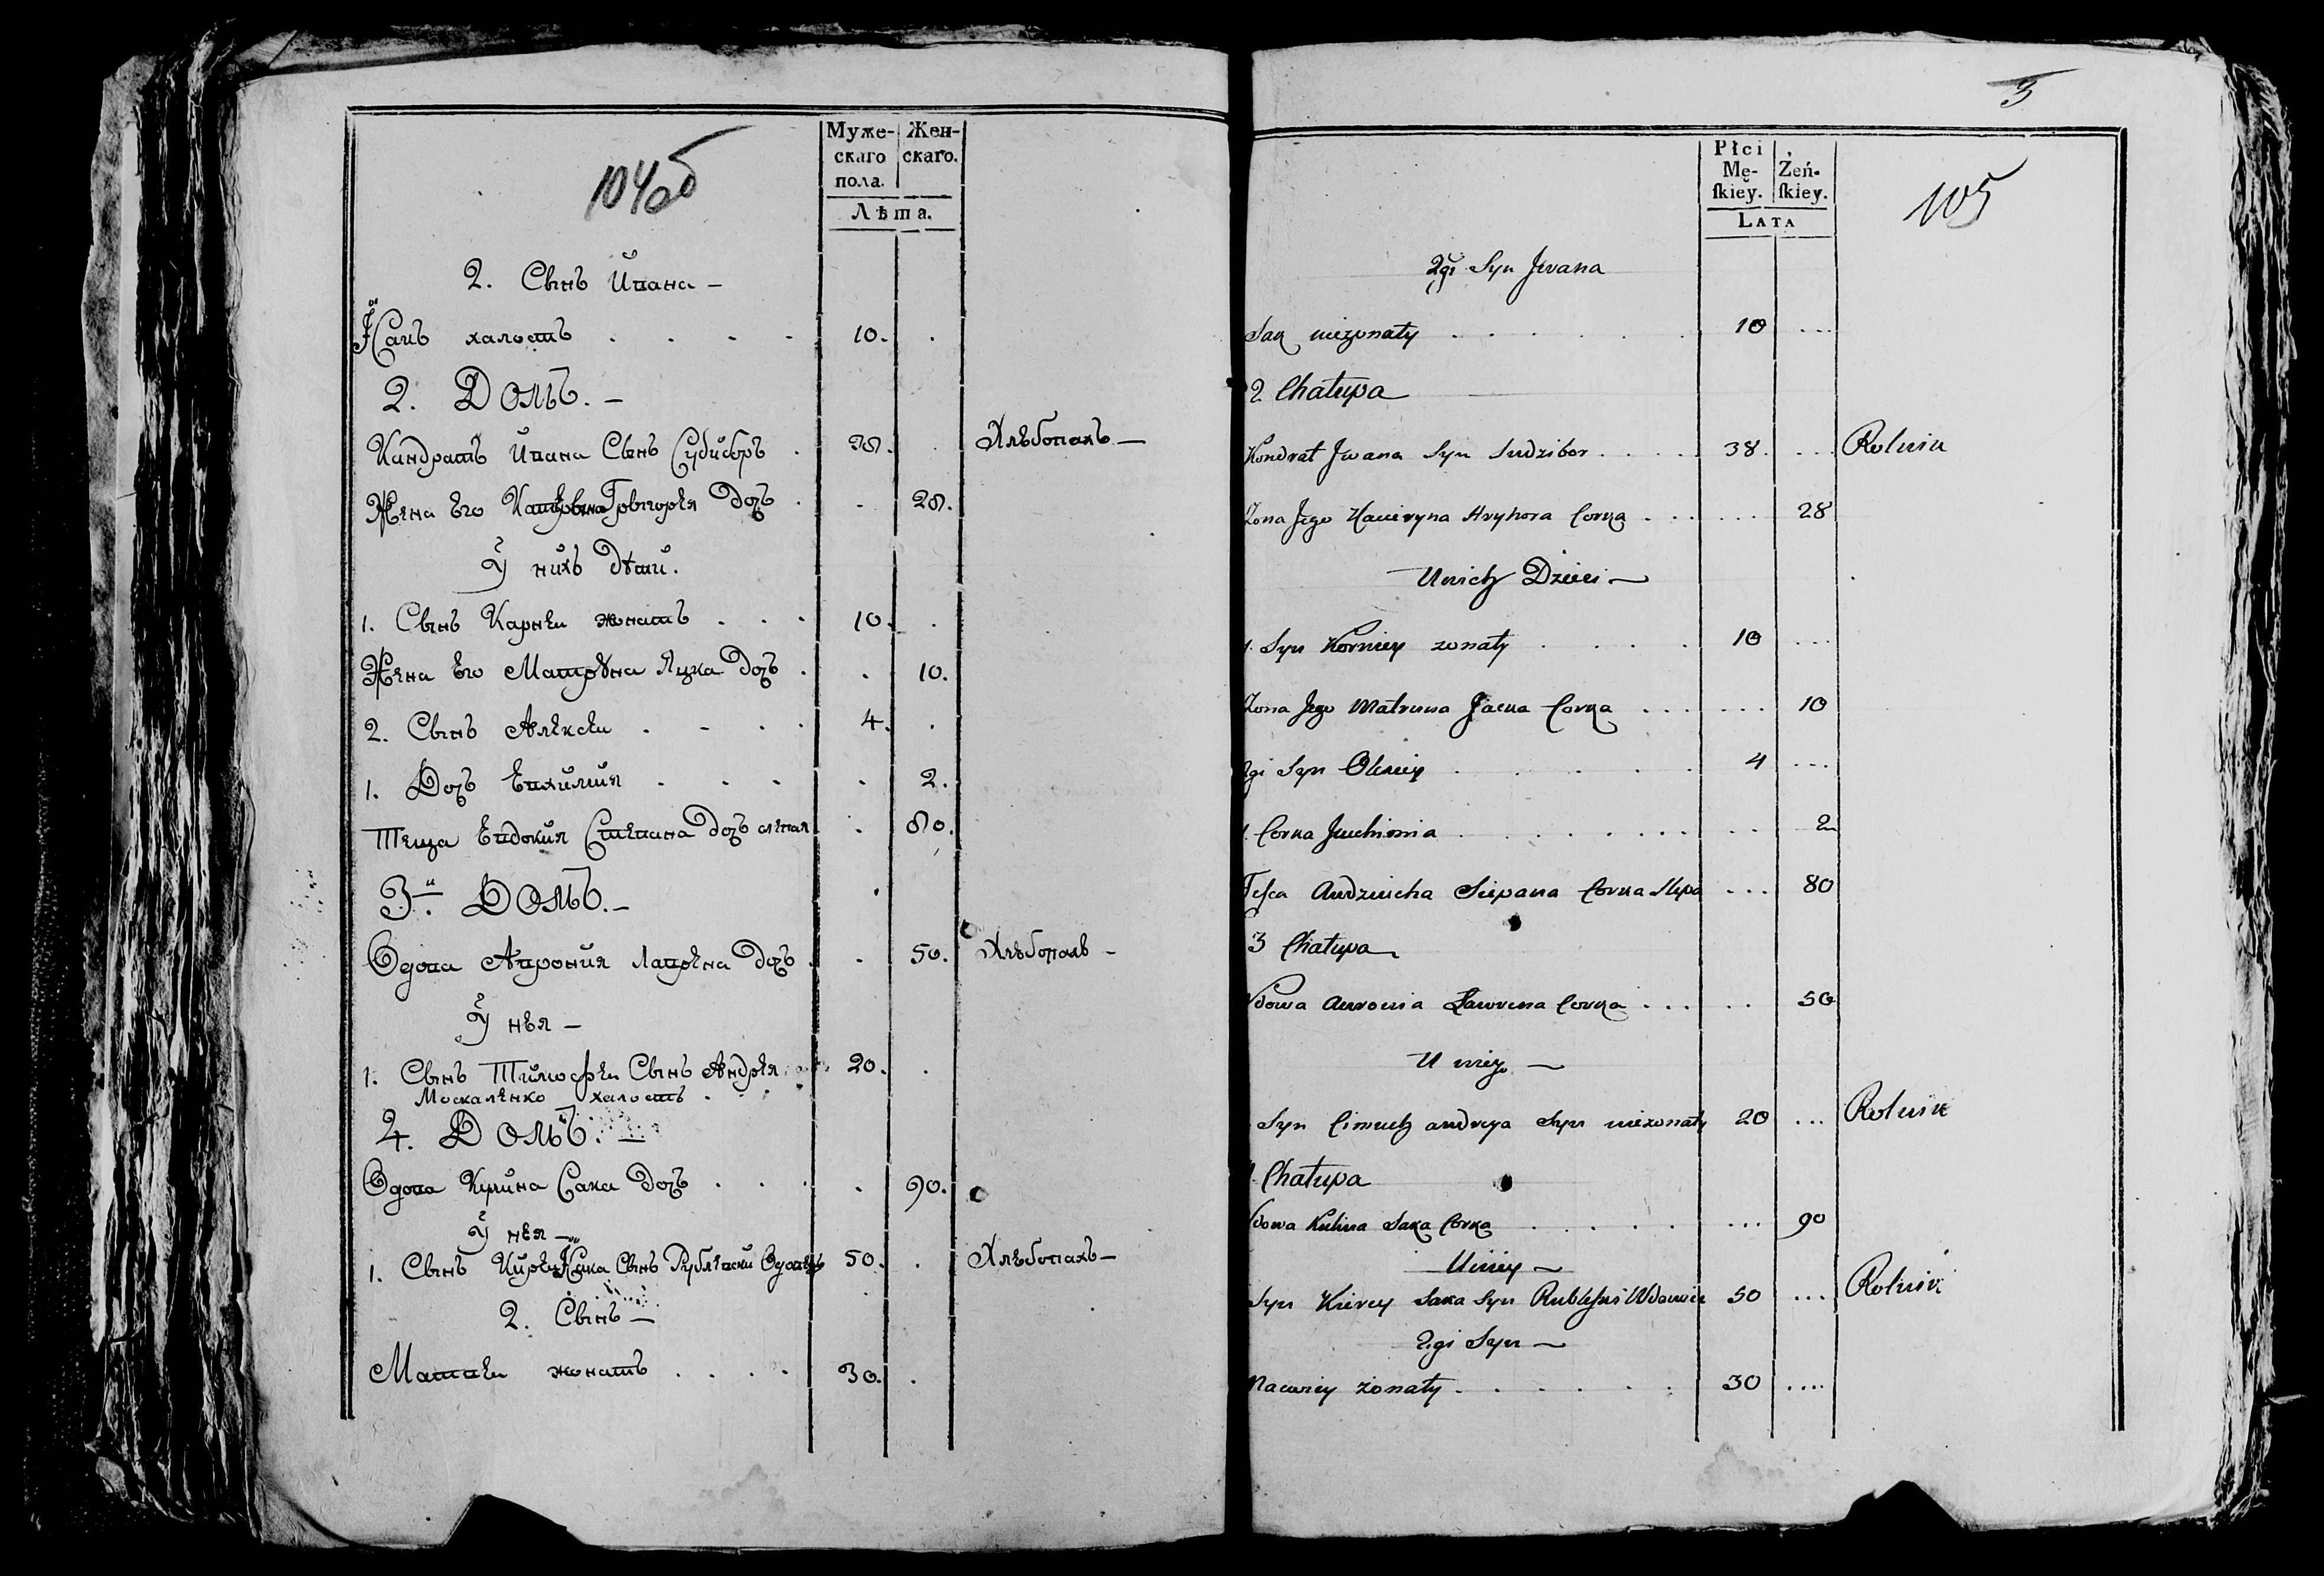 104об
Муже-
скаго
пола.
Жен-
скаго.
Лѣта.
2. Сынъ Ивана —
Сакъ халостъ . . . . 10. .
2. Домъ. —
Кандратъ Ивана Сынъ Судиборъ . 38. . Хлѣбопахъ —
Жена Его Катерына Григорея Дочъ . . 28.
У нихъ Дѣти.
1. Сынъ Карнеи жонатъ . . . 10. .
Жена Его Матрена Яцка Дочъ . . 10.
2. Сынъ Алексеи . . . . 4. .
1. Дочъ Евхимия . . . . 2.
Теща Евдокия Степана Дочъ слепая . 80.
3й. Домъ. —
Вдова Аврония Лаврена Дочъ . . 50. Хлѣбопахъ —
У нея —
1. Сынъ Тимофеи Сынъ Андрея 20. .
Москаленко халостъ .
4. Домъ. —
Вдова Кулина Сака Дочъ . . . . 90.
У нея —
1. Сынъ Киреи Сака Сынъ Рублевски Вдовецъ 50. . Хлѣбопахъ —
2. Сынъ —
Матвеи жонатъ . . . . 30. .
3
Płci
Mę-
ſkiey.
Żeń-
ſkiey.
LATA
105
2gi Syn Jwana
Sak nieżonaty . . . . . 10 ...
2 Chałupa
Kondrat Jwana Syn Sudzibor . . . . 38. ... Rolnik
Zona Jego Kacieryna Hryhora Corka . . . ... 28
U nich Dzieci —
1. Syn Korniey zonaty . . . . 10 ...
Zona Jego Matruna Jacka Corka . . . ... 10
2gi Syn Olexiey . . . . . 4 ...
1. Corka Jewchimia . . . . . . . . . 2
Teſca Awdziucha Sciepana Corka Slepa ... 80
3 Chałupa
Wdowa Awronia Ławrena Corka . . . . . 50
U niey —
Syn Cimuch andreya Syn nieżonaty 20 ... Rolnik
Chałupa
Wdowa Kulina Saka Corka . . . . . ... 90
U niey —
Syn Kirey Saka Syn Rubleſki Wdowiec 50 ... Rolnik
2gi Syn —
Maciey żonaty . . . . . . 30 ....